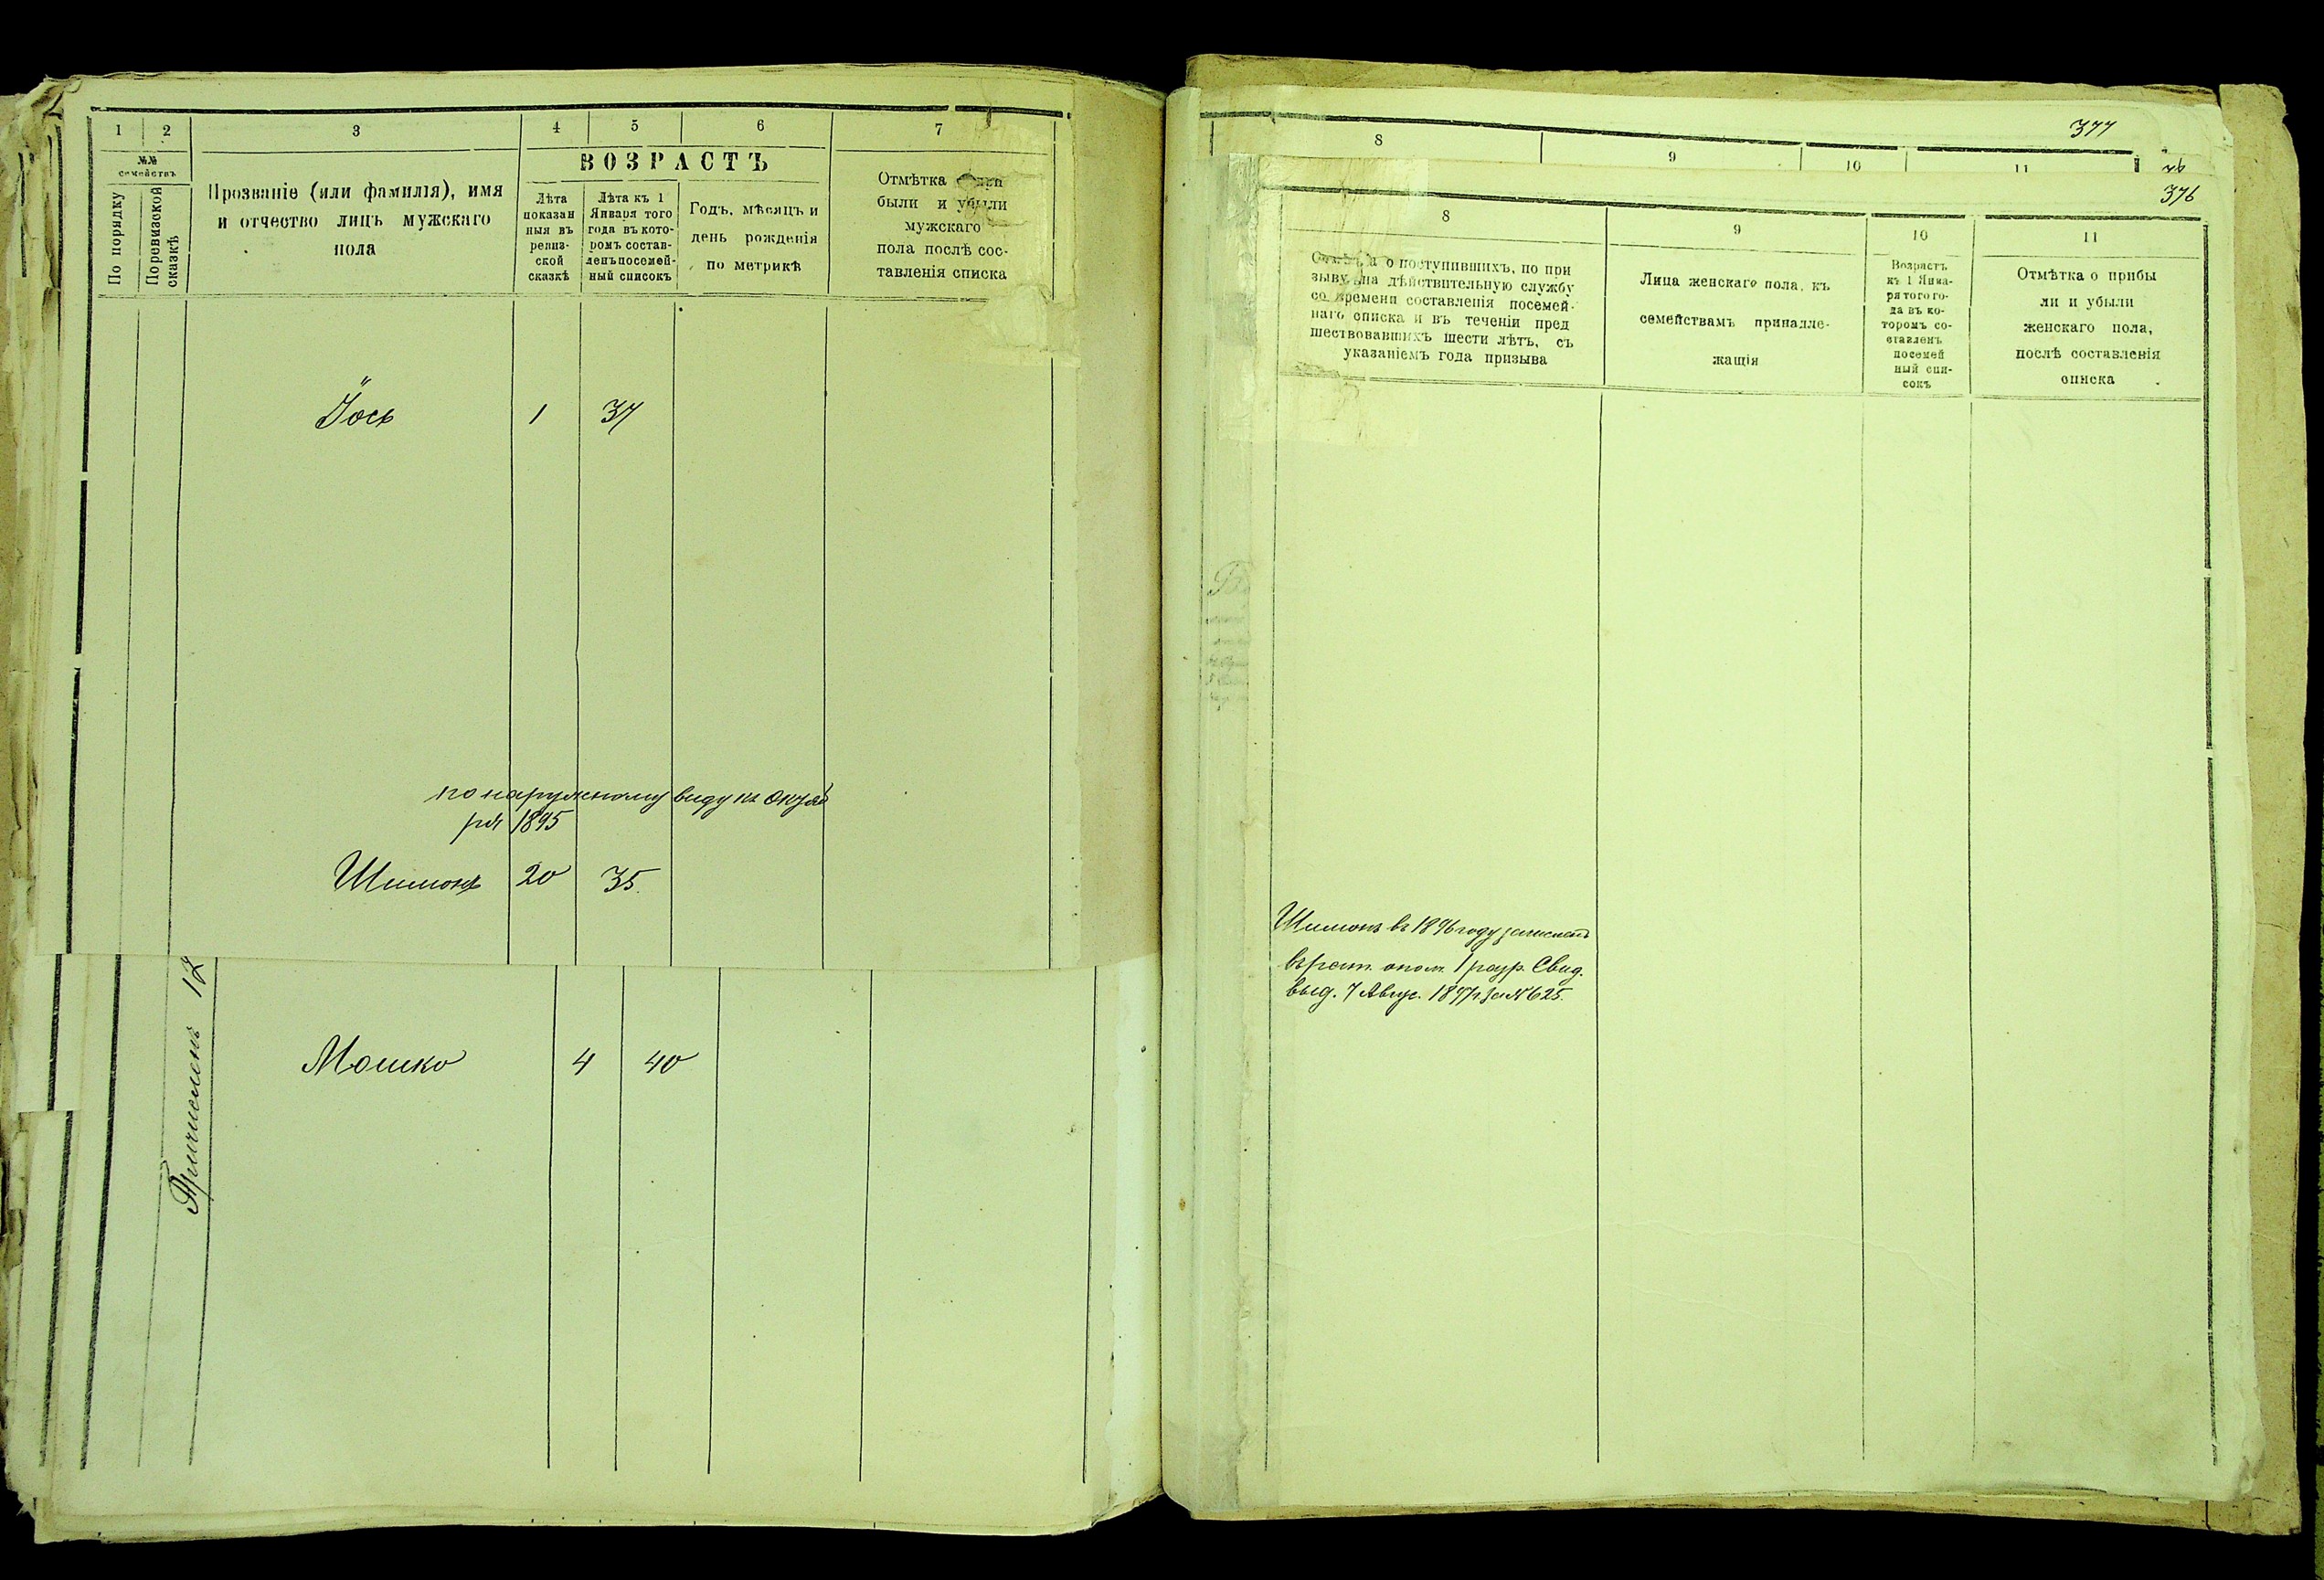 1 2 3 4 5 6 7
№№ семействъ
По порядку
По ревизской сказкѣ
Прозваніе (или фамилія), имя
и отчество лицъ мужскаго
пола
ВОЗРАСТЪ
Лѣта
показан
ныя въ
ревиз-
ской
сказкѣ
Лѣта къ 1
Января того
года въ кото-
ромъ состав-
ленъ посемей-
ный списокъ
Годъ, мѣсяцъ и
день рожденія
по метрикѣ
Отмѣтка при
были и убыли
мужскаго
пола послѣ сос-
тавленія списка
Іось 1 37
по наружному виду къ
1895
Шимонъ 20 35.
Причисленъ 12
Мошко 4 40
377
8 9 10 11
376
8 9 10 11
о поступившихъ, по при
зыву, на дѣйствительную службу
со времени составленія посемей-
наго списка и въ теченіи пред
шествовавшихъ шести лѣтъ, съ
указаніемъ года призыва
Лица женскаго пола, къ
семействамъ принадле-
жащія
Возрастъ
къ 1 Янва-
ря того го-
да въ ко-
торомъ со-
ставленъ
посемей
ный спи-
сокъ
Отмѣтка о прибы
ли и убыли
женскаго пола,
послѣ составленія
списка
Шимонъ въ 1896 году зачисленъ
въ рат. опол. 1 разр. Свид.
выд. 7 Авгус. 1897 г. за № 625.